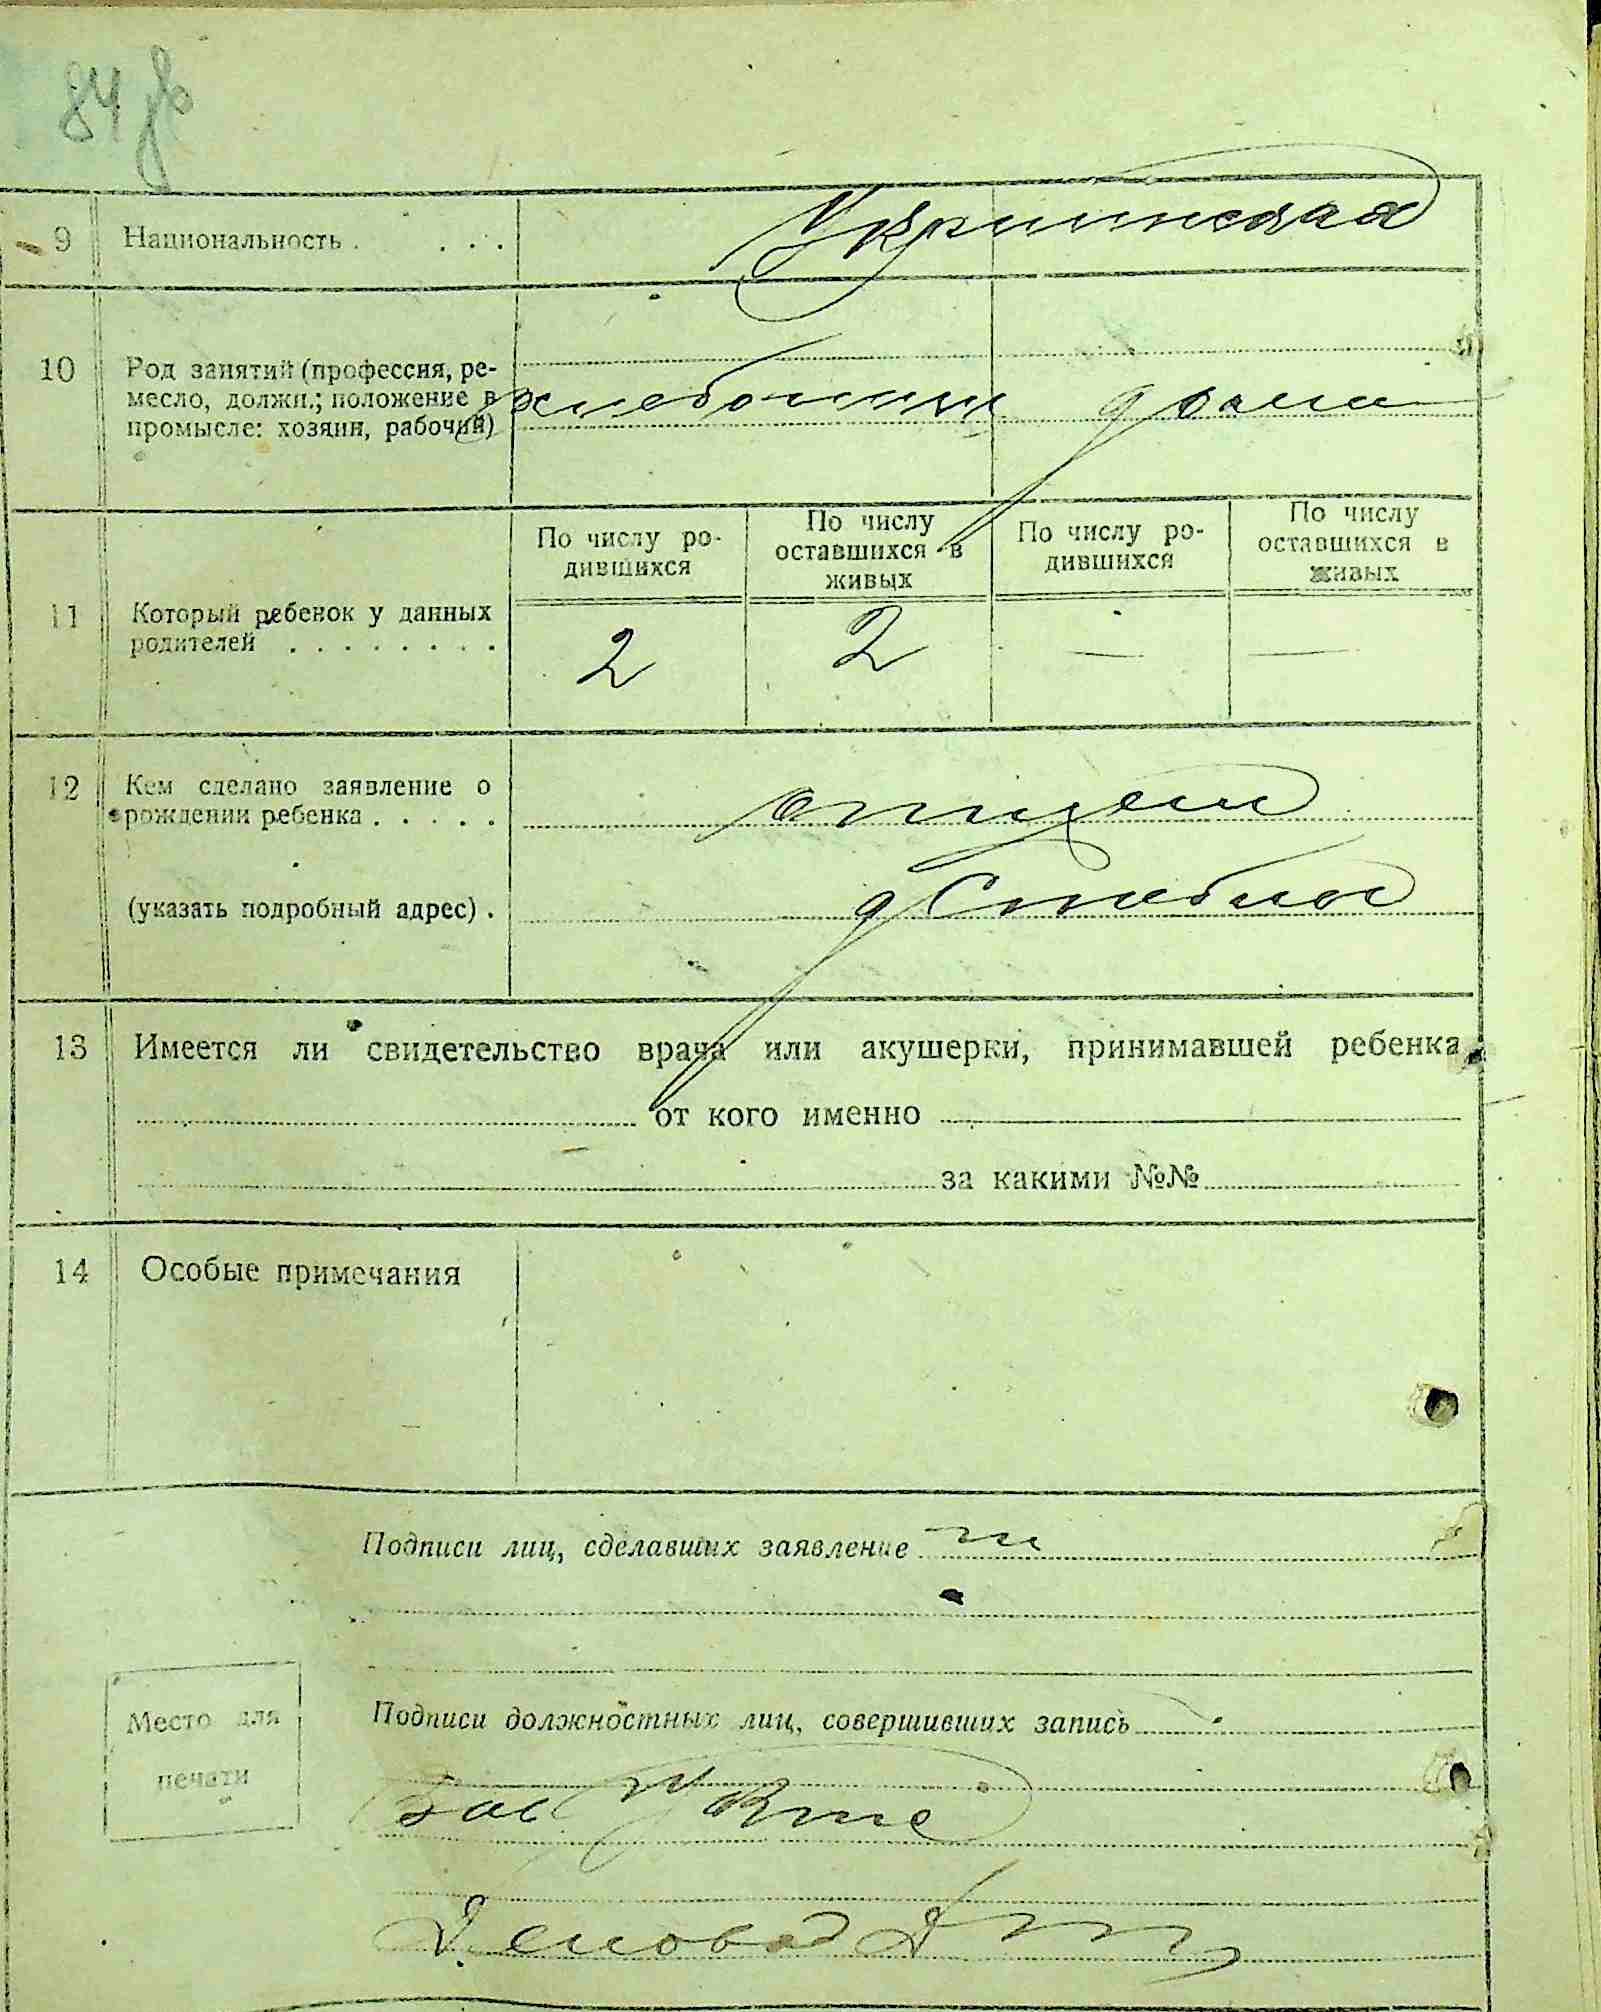 84
9 Национальность . . . . Украинская
10 Род занятий (профессия, ре-
месло, должн.; положение в
промысле: хозяин, рабочий)
хлебопашец дома
По числу ро-
дившихся
По числу
оставшихся в
живых
По числу ро-
дившихся
По числу
оставшихся в
живых
11 Который ребенок у данных
родителей . . . . . . . .
2 2 — —
12 Кем сделано заявление о
рождении ребенка . . . . . отцем
(указать подробный адрес) .
13 Имеется ли свидетельство врача или акушерки, принимавшей ребенка
от кого именно
за какими №№
14 Особые примечания
Подписи лиц, сделавших заявление
Место для
печати
Подписи должностных лиц, совершивших запись
Деловод